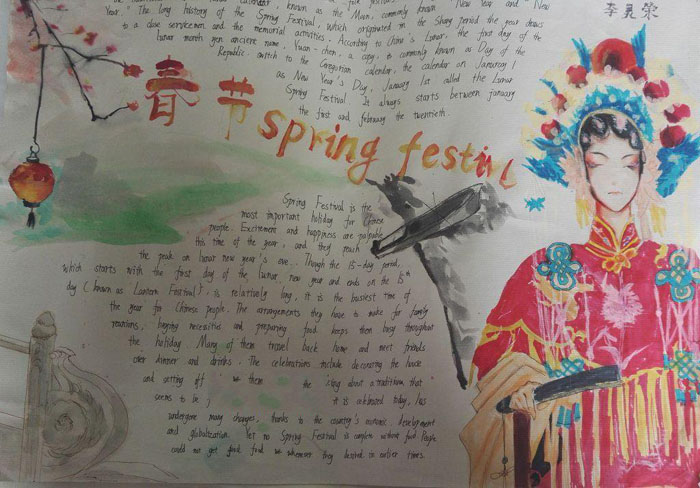 known as the Moon, commonly known
New Year and New
Year." The long history of the Spring Festival, which originated in the Shang period the year draws
to a close and the memorial activities. According to China's Lunar, the first day of the
lunar month anciene name, Yuan-chen, a copy, is commonly known as Day of the
Republic, switch to the Gregorian calendar, the calendar on January 1
as New Year's Day, January 1st alled the Lunar
Spring Festival. It always starts between january
the first and february the twentieth.
李 荣
春节 spring festival
Spring Festival is the
most important holiday for Chinese
people. Excitement and happiness are palpable
this time of the year, and they reach
the peak on lunar new year's eve. Though the 15-day period,
which starts with the first day of the lunar new year and ends on the 15th
day (known as Lantern Festival), is relatively long, it is the busiest time of
the year for Chinese people. The arrangements they have to make for family
reunions, buying necessities and preparing food keeps them busy throughout
the holiday. Many of them travel back home and meet friends
over dinner and drinks. The celebrations include decorating the house
and setting off them the thing about a traditions that
seems to be it is celebrated today, has
undergone many changes, thanks to the country's economic development
and globalization. Yet no Spring Festival is complete without food. People
could not get good food whenever they desired in earlier times.